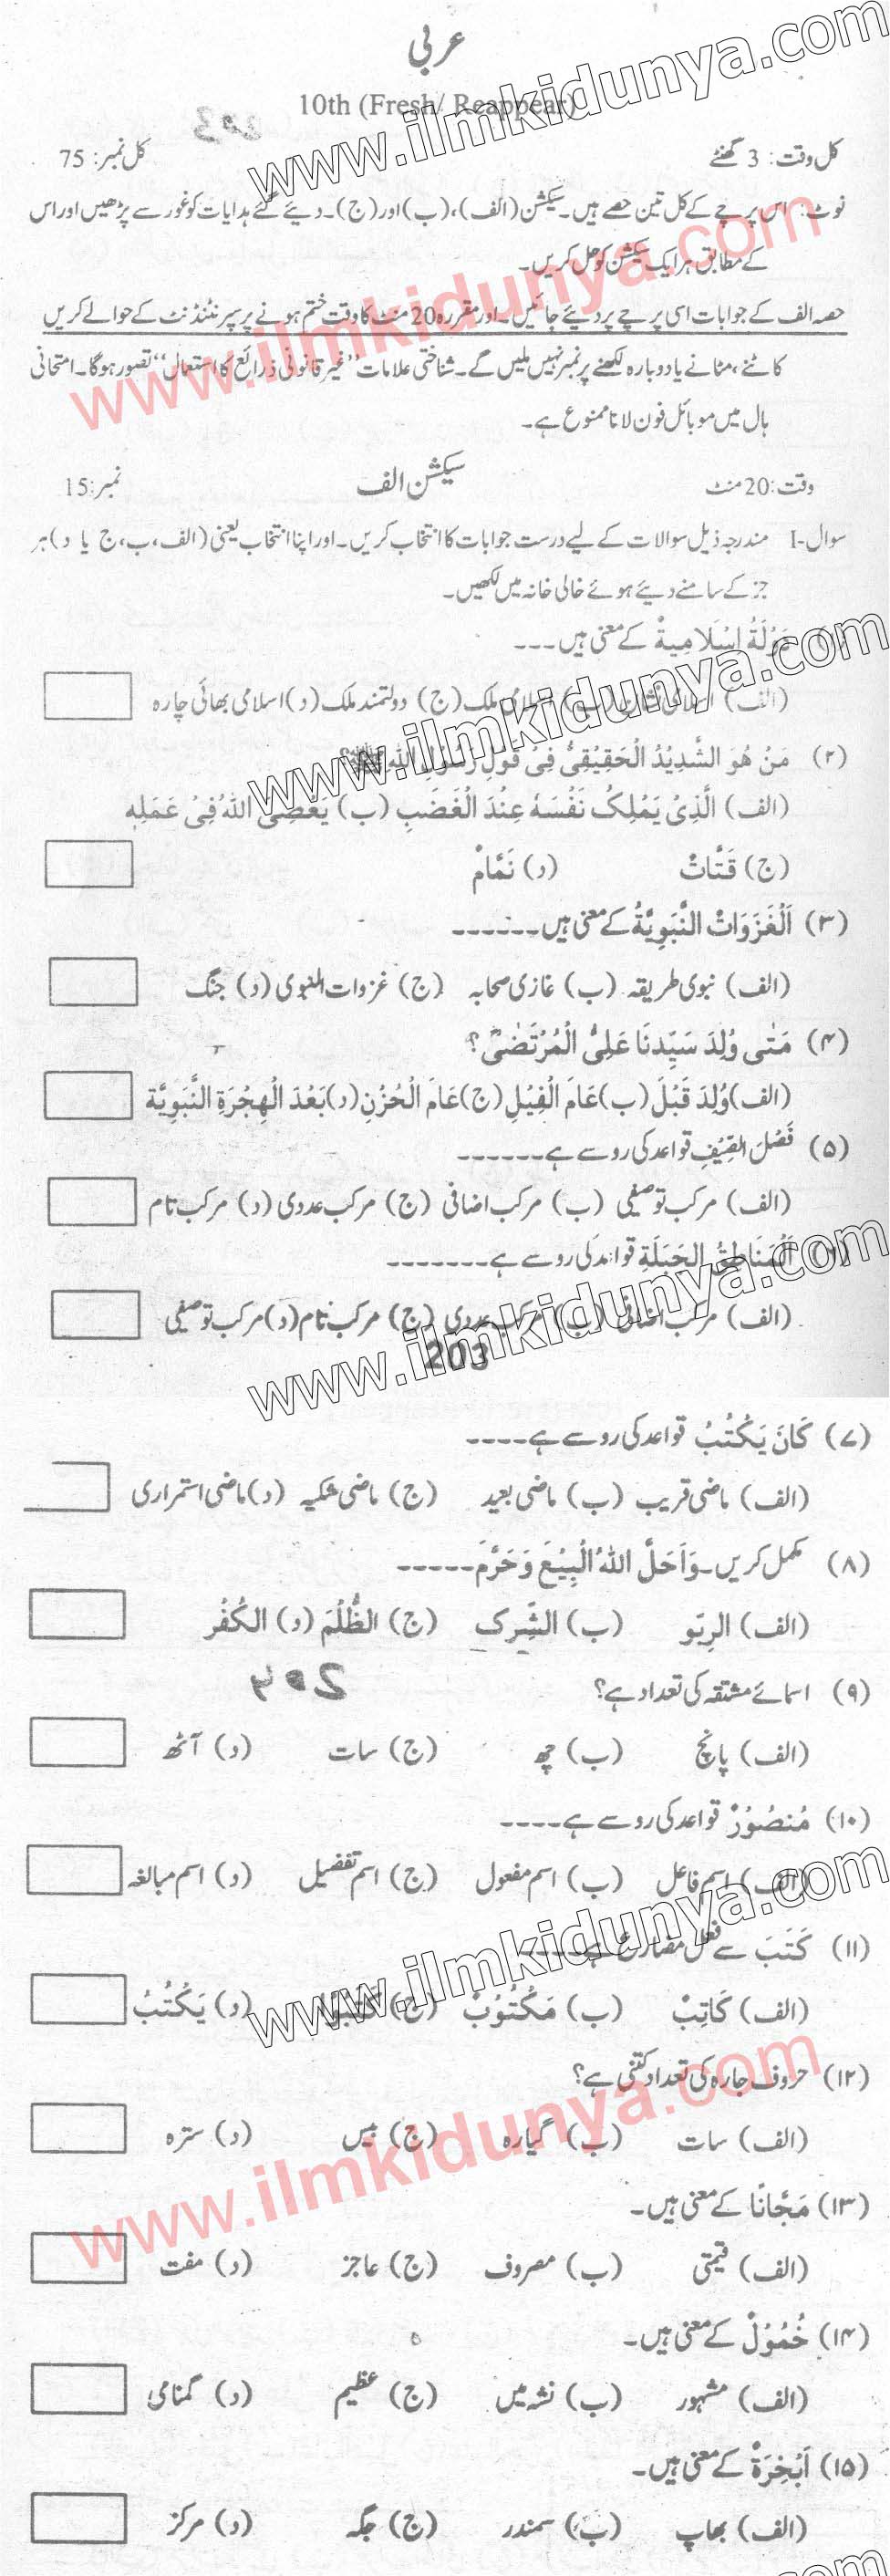 عربی
10th (Fresh/ Reappear)
کل وقت: 3 گھنٹے کل نمبر: 75
نوٹ: اس پرچے کے کل تین حصے ہیں۔ سیکشن (الف)، (ب) اور (ج)۔ دیئے گئے ہدایات کو غور سے پڑھیں اور اس
کے مطابق ہر ایک سیکشن کو حل کریں۔
حصہ الف کے جوابات اسی پرچے پر دیئے جائیں۔ اور مقررہ 20 منٹ کا وقت ختم ہونے پر سپرنٹنڈنٹ کے حوالے کریں
کاٹنے، مٹانے یا دوبارہ لکھنے پر نمبر نہیں ملیں گے۔ شناختی علامات ”غیر قانونی ذرائع کا استعمال“ تصور ہوگا۔ امتحانی
ہال میں موبائل فون لانا ممنوع ہے۔
وقت: 20 منٹ سیکشن الف نمبر: 15
سوال-I مندرجہ ذیل سوالات کے لیے درست جوابات کا انتخاب کریں۔ اور اپنا انتخاب یعنی (الف، ب، ج یا د) ہر
جز کے سامنے دیئے ہوئے خالی خانہ میں لکھیں۔
دَوْلَةُ اِسْلَامِيَةٌ کے معنی ہیں۔۔۔
(الف) اسلامی نشان (ب) اسلامی ملک (ج) دولتمند ملک (د) اسلامی بھائی چارہ
(۲) مَنْ هُوَ الشَّدِيْدُ الْحَقِيْقِىُّ فِىْ قَوْلِ رَسُوْلِ اللهِ ﷺ؟
(الف) الَّذِىْ يَمْلِکُ نَفْسَهٗ عِنْدَ الْغَضَبِ (ب) يَعْصِى اللهُ فِىْ عَمَلِهٖ
(ج) قَتَّاتٌ (د) نَمَّامٌ
(۳) اَلْغَزَوَاتُ النَّبَوِيَّةُ کے معنی ہیں۔۔۔۔۔۔
(الف) نبوی طریقہ (ب) غازی صحابہ (ج) غزوات النبوی (د) جنگ
(۴) مَتٰى وُلِدَ سَيِّدنَا عَلِىُّ الْمُرْتَضٰىؓ ؟
(الف) وُلِدَ قَبْلَ (ب) عَامَ الْفِيْلِ (ج) عَامَ الْحُزْنِ (د) بَعْدَ الْهِجْرَةِ النَّبَوِيَّة
(۵) فَصْلَ الصَّيْفِ قواعد کی رو سے ہے۔۔۔۔۔۔
(الف) مرکب توصیفی (ب) مرکب اضافی (ج) مرکب عددی (د) مرکب تام
اَلْمَنَاطِقُ الْجَبَلَةِ قواعد کی رو سے ہے۔۔۔۔۔۔۔
(الف) مرکب اضافی (ب) مرکب عددی (ج) مرکب تام (د) مرکب توصیفی
203
(۷) کَانَ يَکْتُبُ قواعد کی رو سے ہے۔۔۔۔
(الف) ماضی قریب (ب) ماضی بعید (ج) ماضی شکیہ (د) ماضی استمراری
(۸) مکمل کریں۔ وَاَحَلَّ اللهُ الْبَيْعَ وَحَرَّمَ۔۔۔۔۔
(الف) الرِبٰو (ب) الشِّرِک (ج) الظُّلُمَ (د) الکُفُرُ
204
(۹) اسمائے مشتقہ کی تعداد ہے؟
(الف) پانچ (ب) چھ (ج) سات (د) آٹھ
(۱۰) مَنصُوْرٌ قواعد کی رو سے ہے۔۔۔۔
(الف) اسم فاعل (ب) اسم مفعول (ج) اسم تفضیل (د) اسم مبالغہ
(۱۱) کَتَبَ سے فعل مضارع ہے۔۔۔۔
(الف) کَاتِبٌ (ب) مَکْتُوْبٌ (ج) کَتَبُوْا (د) يَکْتُبُ
(۱۲) حروف جارہ کی تعداد کتنی ہے؟
(الف) سات (ب) گیارہ (ج) بیس (د) سترہ
(۱۳) مَجَّانًا کے معنی ہیں۔
(الف) قیمتی (ب) مصروف (ج) عاجز (د) مفت
(۱۴) خُمُوْلٌ کے معنی ہیں۔
(الف) مشہور (ب) نشہ میں (ج) عظیم (د) گمنامی
(۱۵) اَبْخِرَةٌ کے معنی ہیں۔
(الف) بھاپ (ب) سمندر (ج) جگہ (د) مرکز
www.ilmkidunya.com
www.ilmkidunya.com
www.ilmkidunya.com
www.ilmkidunya.com
www.ilmkidunya.com
www.ilmkidunya.com